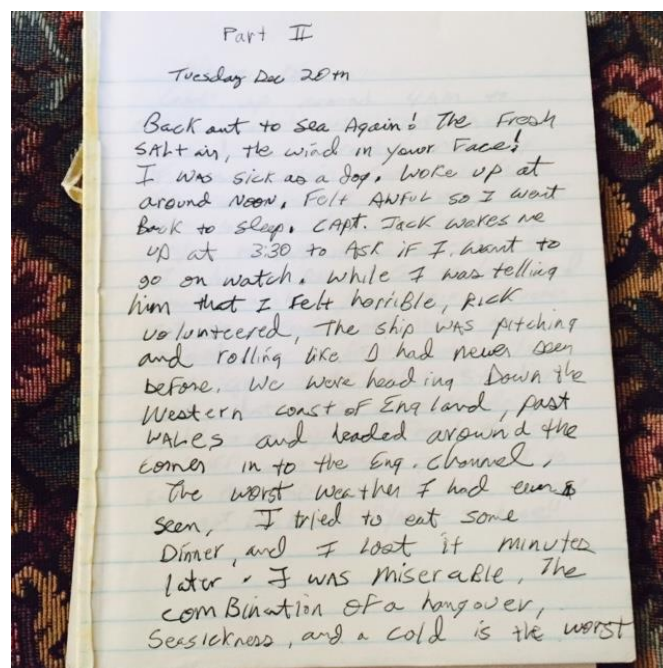 Part II
Tuesday Dec 20th
Back out to sea Again! The Fresh
SALt air, the wind in your Face!
I was sick as a dog. Woke up at
around Noon. Felt AWFUL so I went
Back to sleep. CApt. Jack wakes me
up at 3:30 to Ask if I want to
go on watch. While I was telling
him that I Felt horrible, Rick
volunteered, The ship was pitching
and rolling like I had never seen
before. We were heading Down the
Western coast of England, past
WALes and headed around the
corner in to the Eng. Channel.
The worst weather I had ever
seen, I tried to eat some
Dinner, and I lost it minutes
later. I was miserable, The
comBination of a hangover,
Seasickness, and a cold is the worst